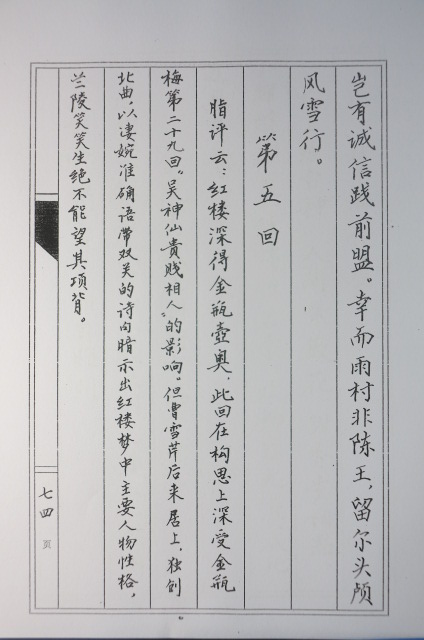 岂有诚信践前盟。幸而雨村非陈王，留尔头颅
风雪行。
第五回
脂评云：红楼深得金瓶壶奥，此回在构思上深受金瓶
梅第二十九回“吴神仙贵贱相人”的影响。但曹雪芹后来居上，独创
北曲，以凄婉准确语带双关的诗句暗示出红楼梦中主要人物性格，
兰陵笑笑生绝不能望其项背。
七四页